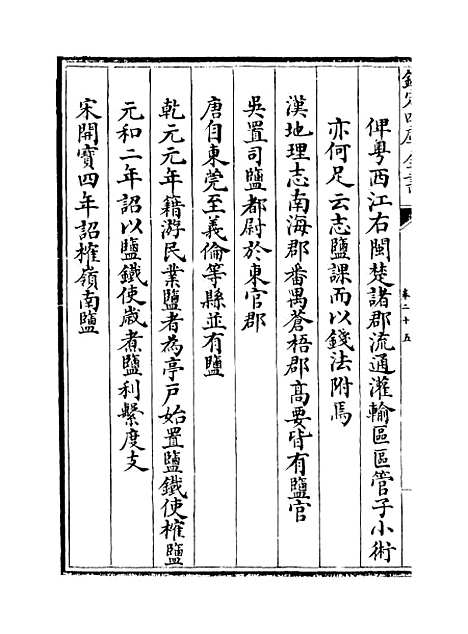 欽定四庫全書
卷二十五
俾粤西江右閩楚諸郡流通灌輸區區管子小術
亦何足云志鹽課而以錢法附焉
漢地理志南海郡番禺蒼梧郡高要皆有鹽官
吳置司鹽都尉於東官郡
唐自東莞至義倫等縣並有鹽
乾元元年籍游民業鹽者為亭戸始置鹽鐵使榷鹽
元和二年詔以鹽鐵使嵗煮鹽利繫度支
宋開寶四年詔榷嶺南鹽